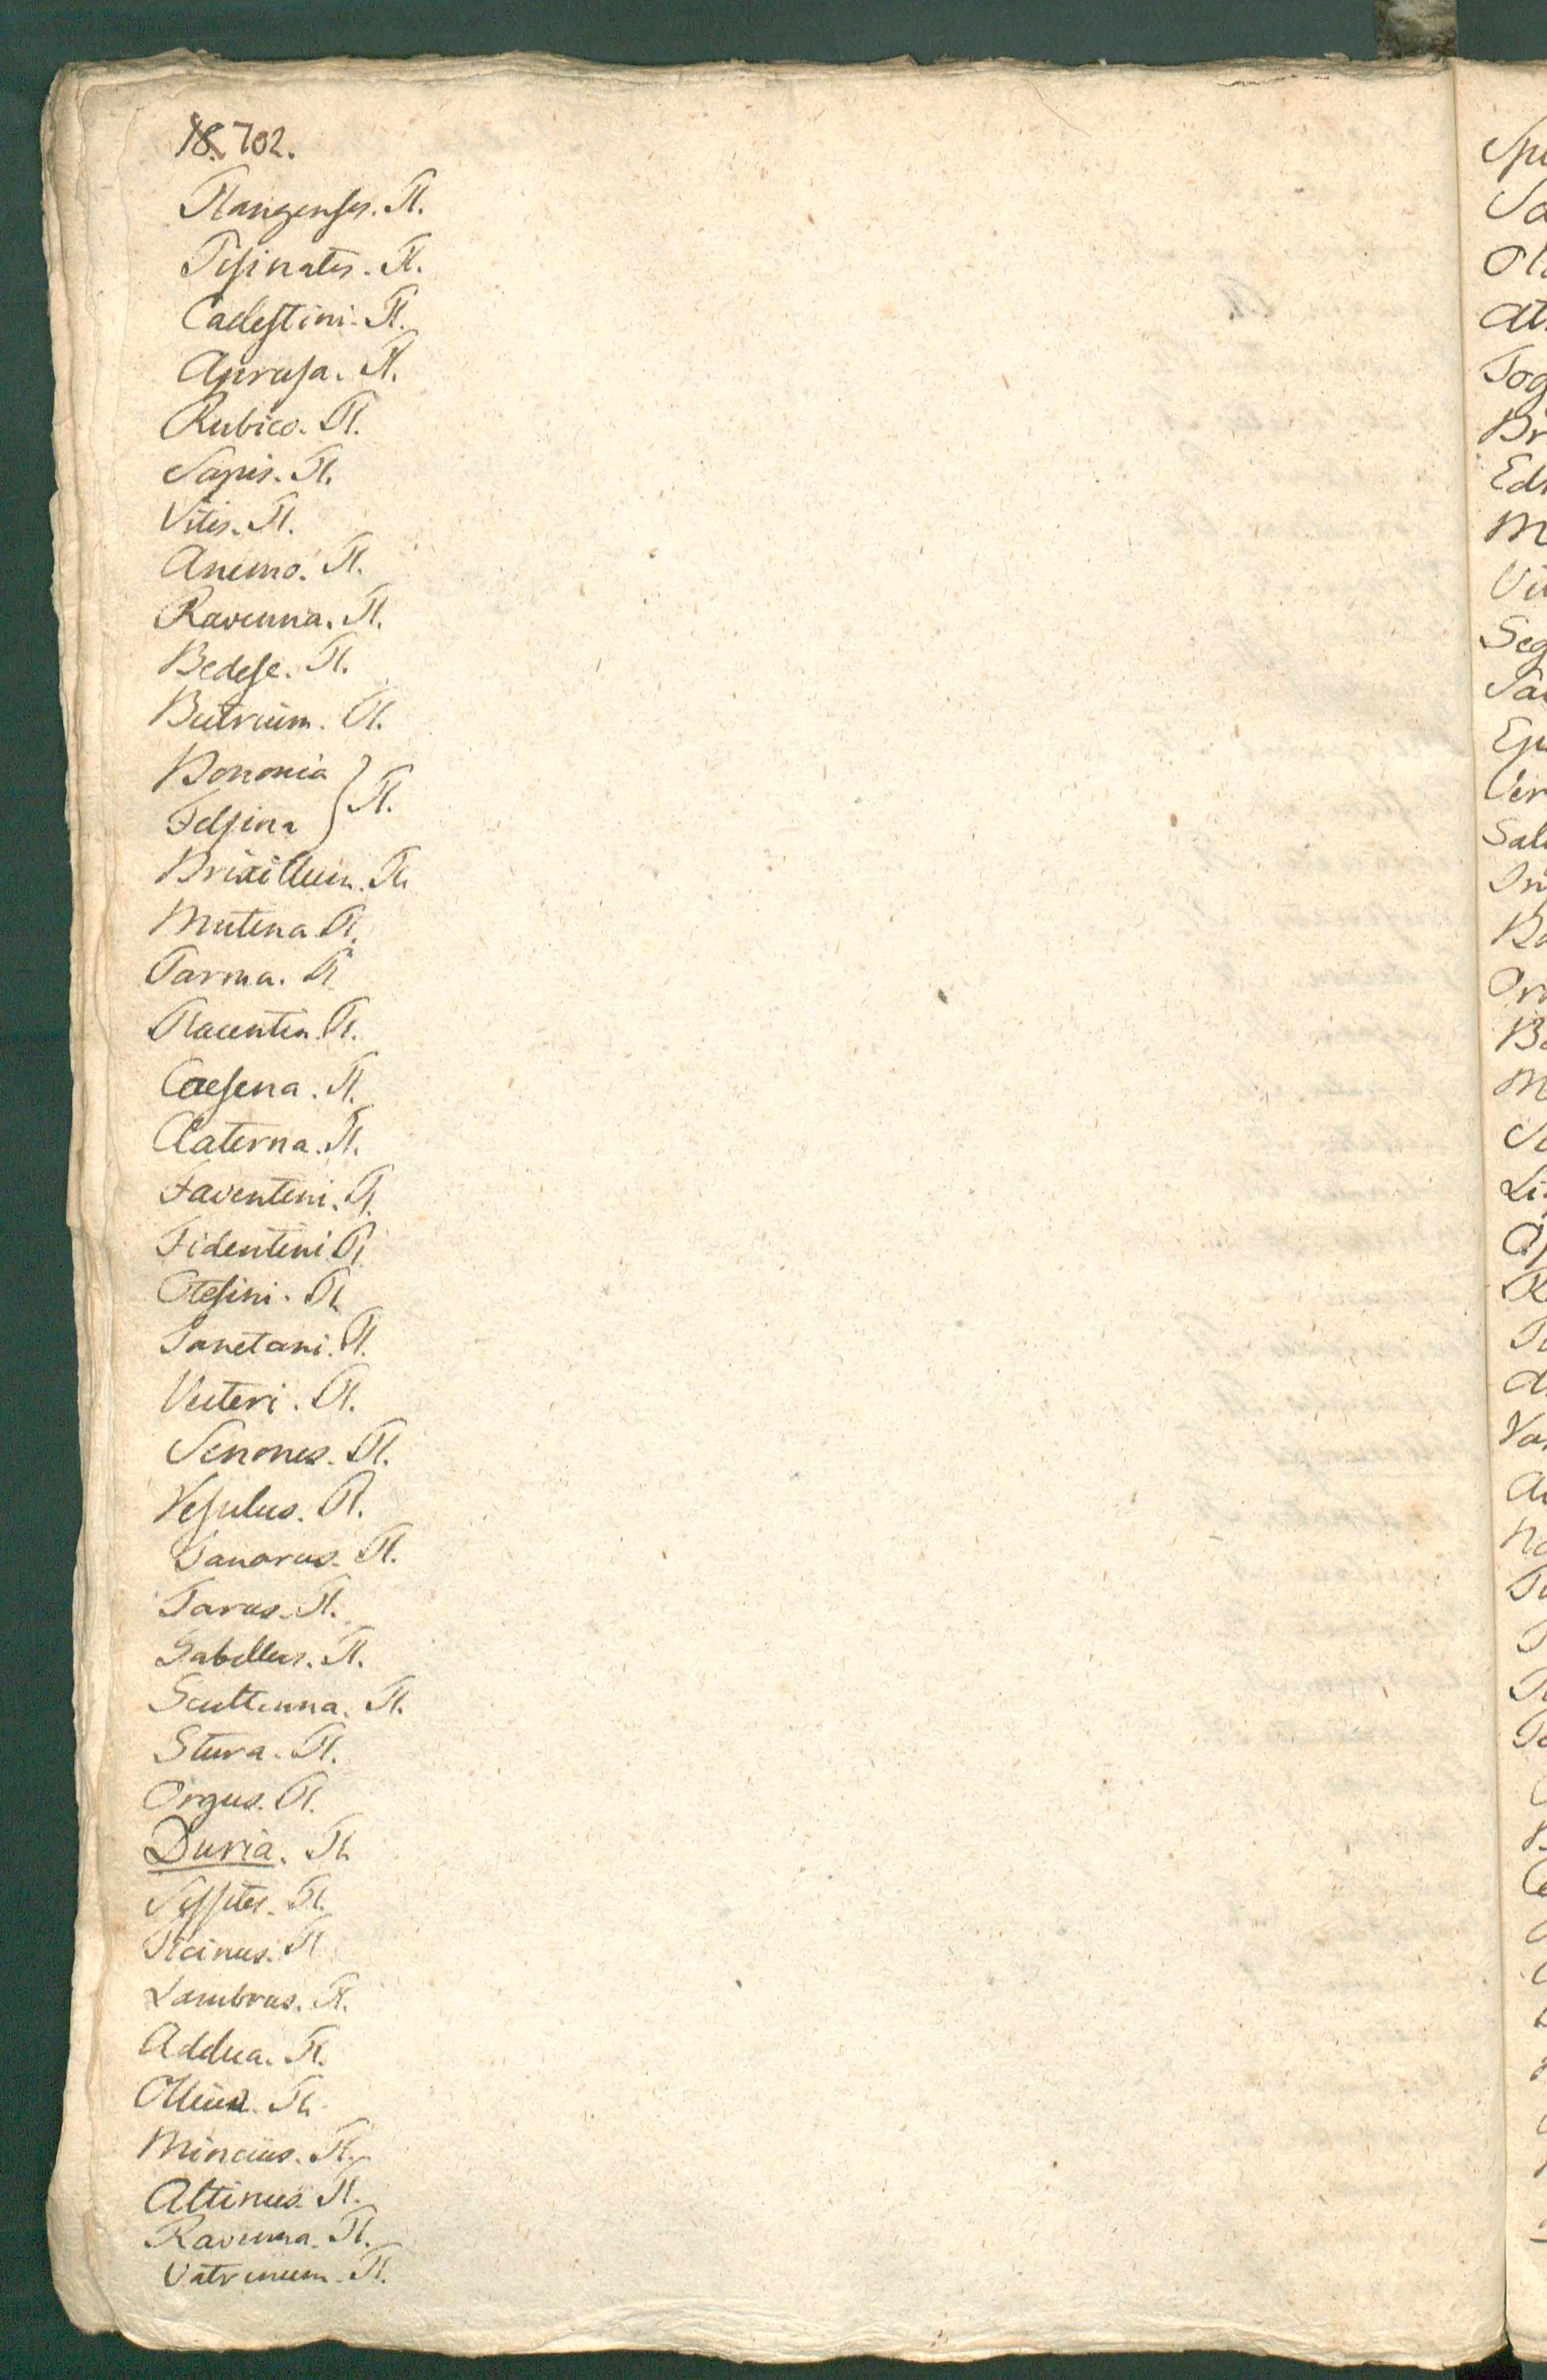 18. 702.
Plangenses. Pl.
Pisinates. Pl.
Caelestini. Pl.
Aprusa. Pl.
Rubico. Pl.
Sapis. Pl.
Vitis. Pl.
Anemo. Pl.
Ravenna. Pl.
Bedese. Pl.
Butrium. Pl.
Bononia
Felsina } Pl.
Brixillum. Pl.
Mutina. Pl.
Parma. Pl
Placentia. Pl.
Caesena. Pl.
Claterna. Pl.
Faventini. Pl.
Fidentini Pl.
Otesini. Pl.
Tanetani. Pl.
Veleri. Pl.
Senones. Pl.
Vesulus. Pl.
Tanarus. Pl.
Tarus. Pl.
Gabellus. Pl.
Scultenna. Pl.
Stura. Pl.
Orgus. Pl.
Duria. Pl.
Sessites. Pl.
Ticinus. Pl
Lambrus. Pl.
Addua. Pl.
Ollius. Pl.
Mincius. Pl.
Altinus. Pl.
Ravenna. Pl.
Vatrenum. Pl.